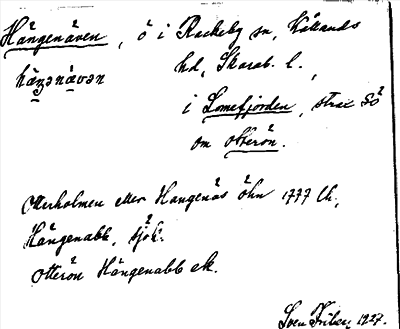 Hängenäven, ö i Rackeby sn, Kållands
hd, Skarab. l.,
i Lomefjorden, strax SÖ
om Otterön.
Otterholmen eller Hangenäs Öhn 1777 Ch,
Hängenabb, sjök.
Otterön Hängenabb ek.
1927.